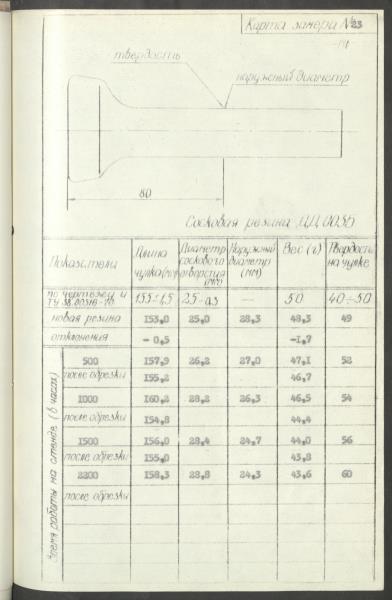 Карта замера №23
твердость
наружный диаметр
80
Сосковая резина ДД.00.35
Показатели | Длина чулка (мм) | Диаметр соскового отверстия (мм) | Наружный диаметр (мм) | Вес (г) | Твердость на чулке
по чертежу и | 155±1,5 | 25-0,5 | — | 50 | 40÷50
новая резина | 153,0 | 25,0 | 28,3 | 48,3 | 49
отклонения | - 0,5 | -1,7
Время работы на стенде (в часах)
500 | 157,9 | 26,2 | 27,0 | 47,1 | 52
после обрезки | 155,2 | 46,7
1000 | 160,2 | 28,2 | 26,3 | 46,5 | 54
после обрезки | 154,8 | 44,4
1500 | 156,0 | 28,4 | 24,7 | 44,0 | 56
после обрезки | 155,0 | 43,8
2200 | 158,3 | 28,8 | 24,3 | 43,6 | 60
после обрезки